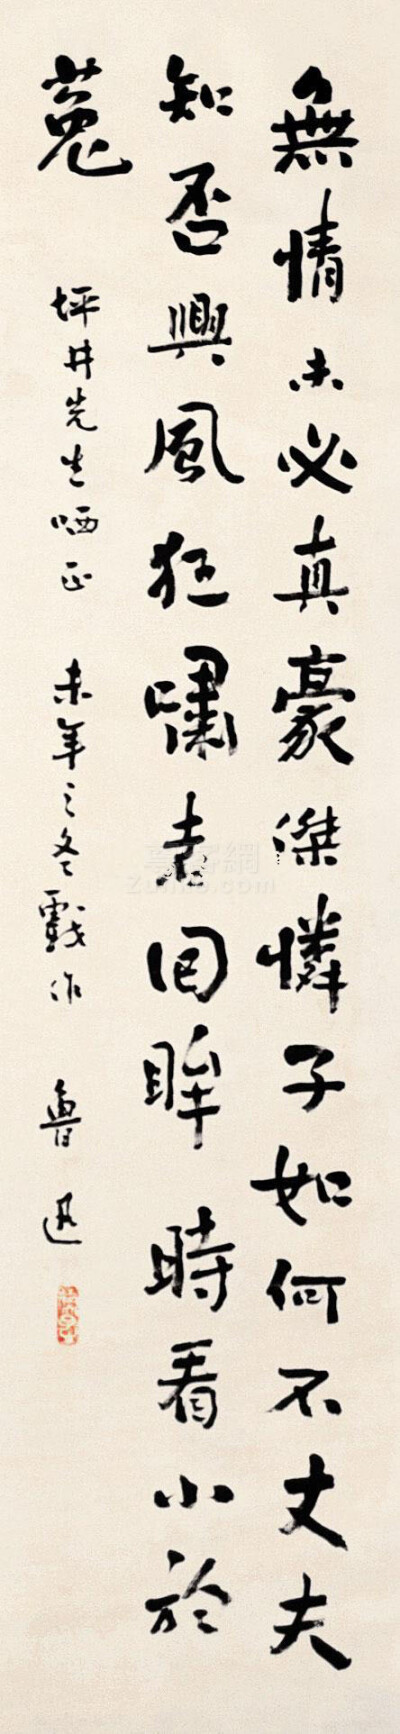 無情未必真豪傑憐子如何不丈夫
知否興風狂嘯者回眸時看小於
菟 坪井先生哂正 未年之冬戲作 魯迅